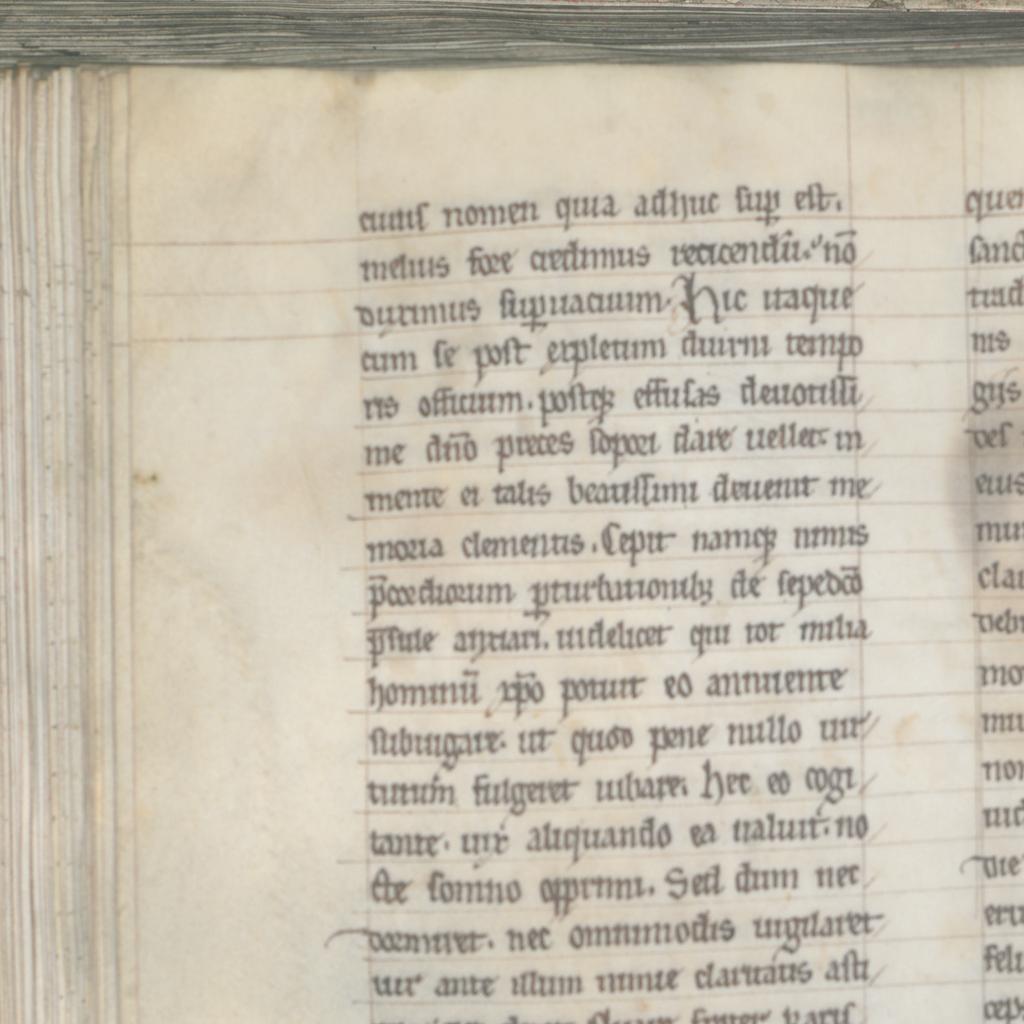 cuius nomen quia adhuc sup̱ est.
melius fore credimus reticendū. nō
duximus sup̱uacuum. Hic itaque
cum se post expletum diurni temp̱o
ris officium. postq̱ȝ effusas deuotissi
me dn̄o preces sopori dare uellet. in
mente ei talis beatissimi deuenit me
moria clementis. Cepit namqȝ nimis
p̄cordiorum p̱turbationibȝ de sepedc̄o
p̄sule anxiari. uidelicet qui tot milia
hominū xp̄o potuit eo annuente
subiugare. ut quod pene nullo uir
tutum fulgeret iubare. hec eo cogi
tante. uix aliquando ea ualuit. no
cte somno opprimi. Sed dum nec
dormiret. nec omnimodis uigilaret
uir ante illum nimie claritatis asti
quer
sanc
trad
nis
giis
des
eius
mun
clar
debi
mo
mu
non
uid
die
eru
feli
cep